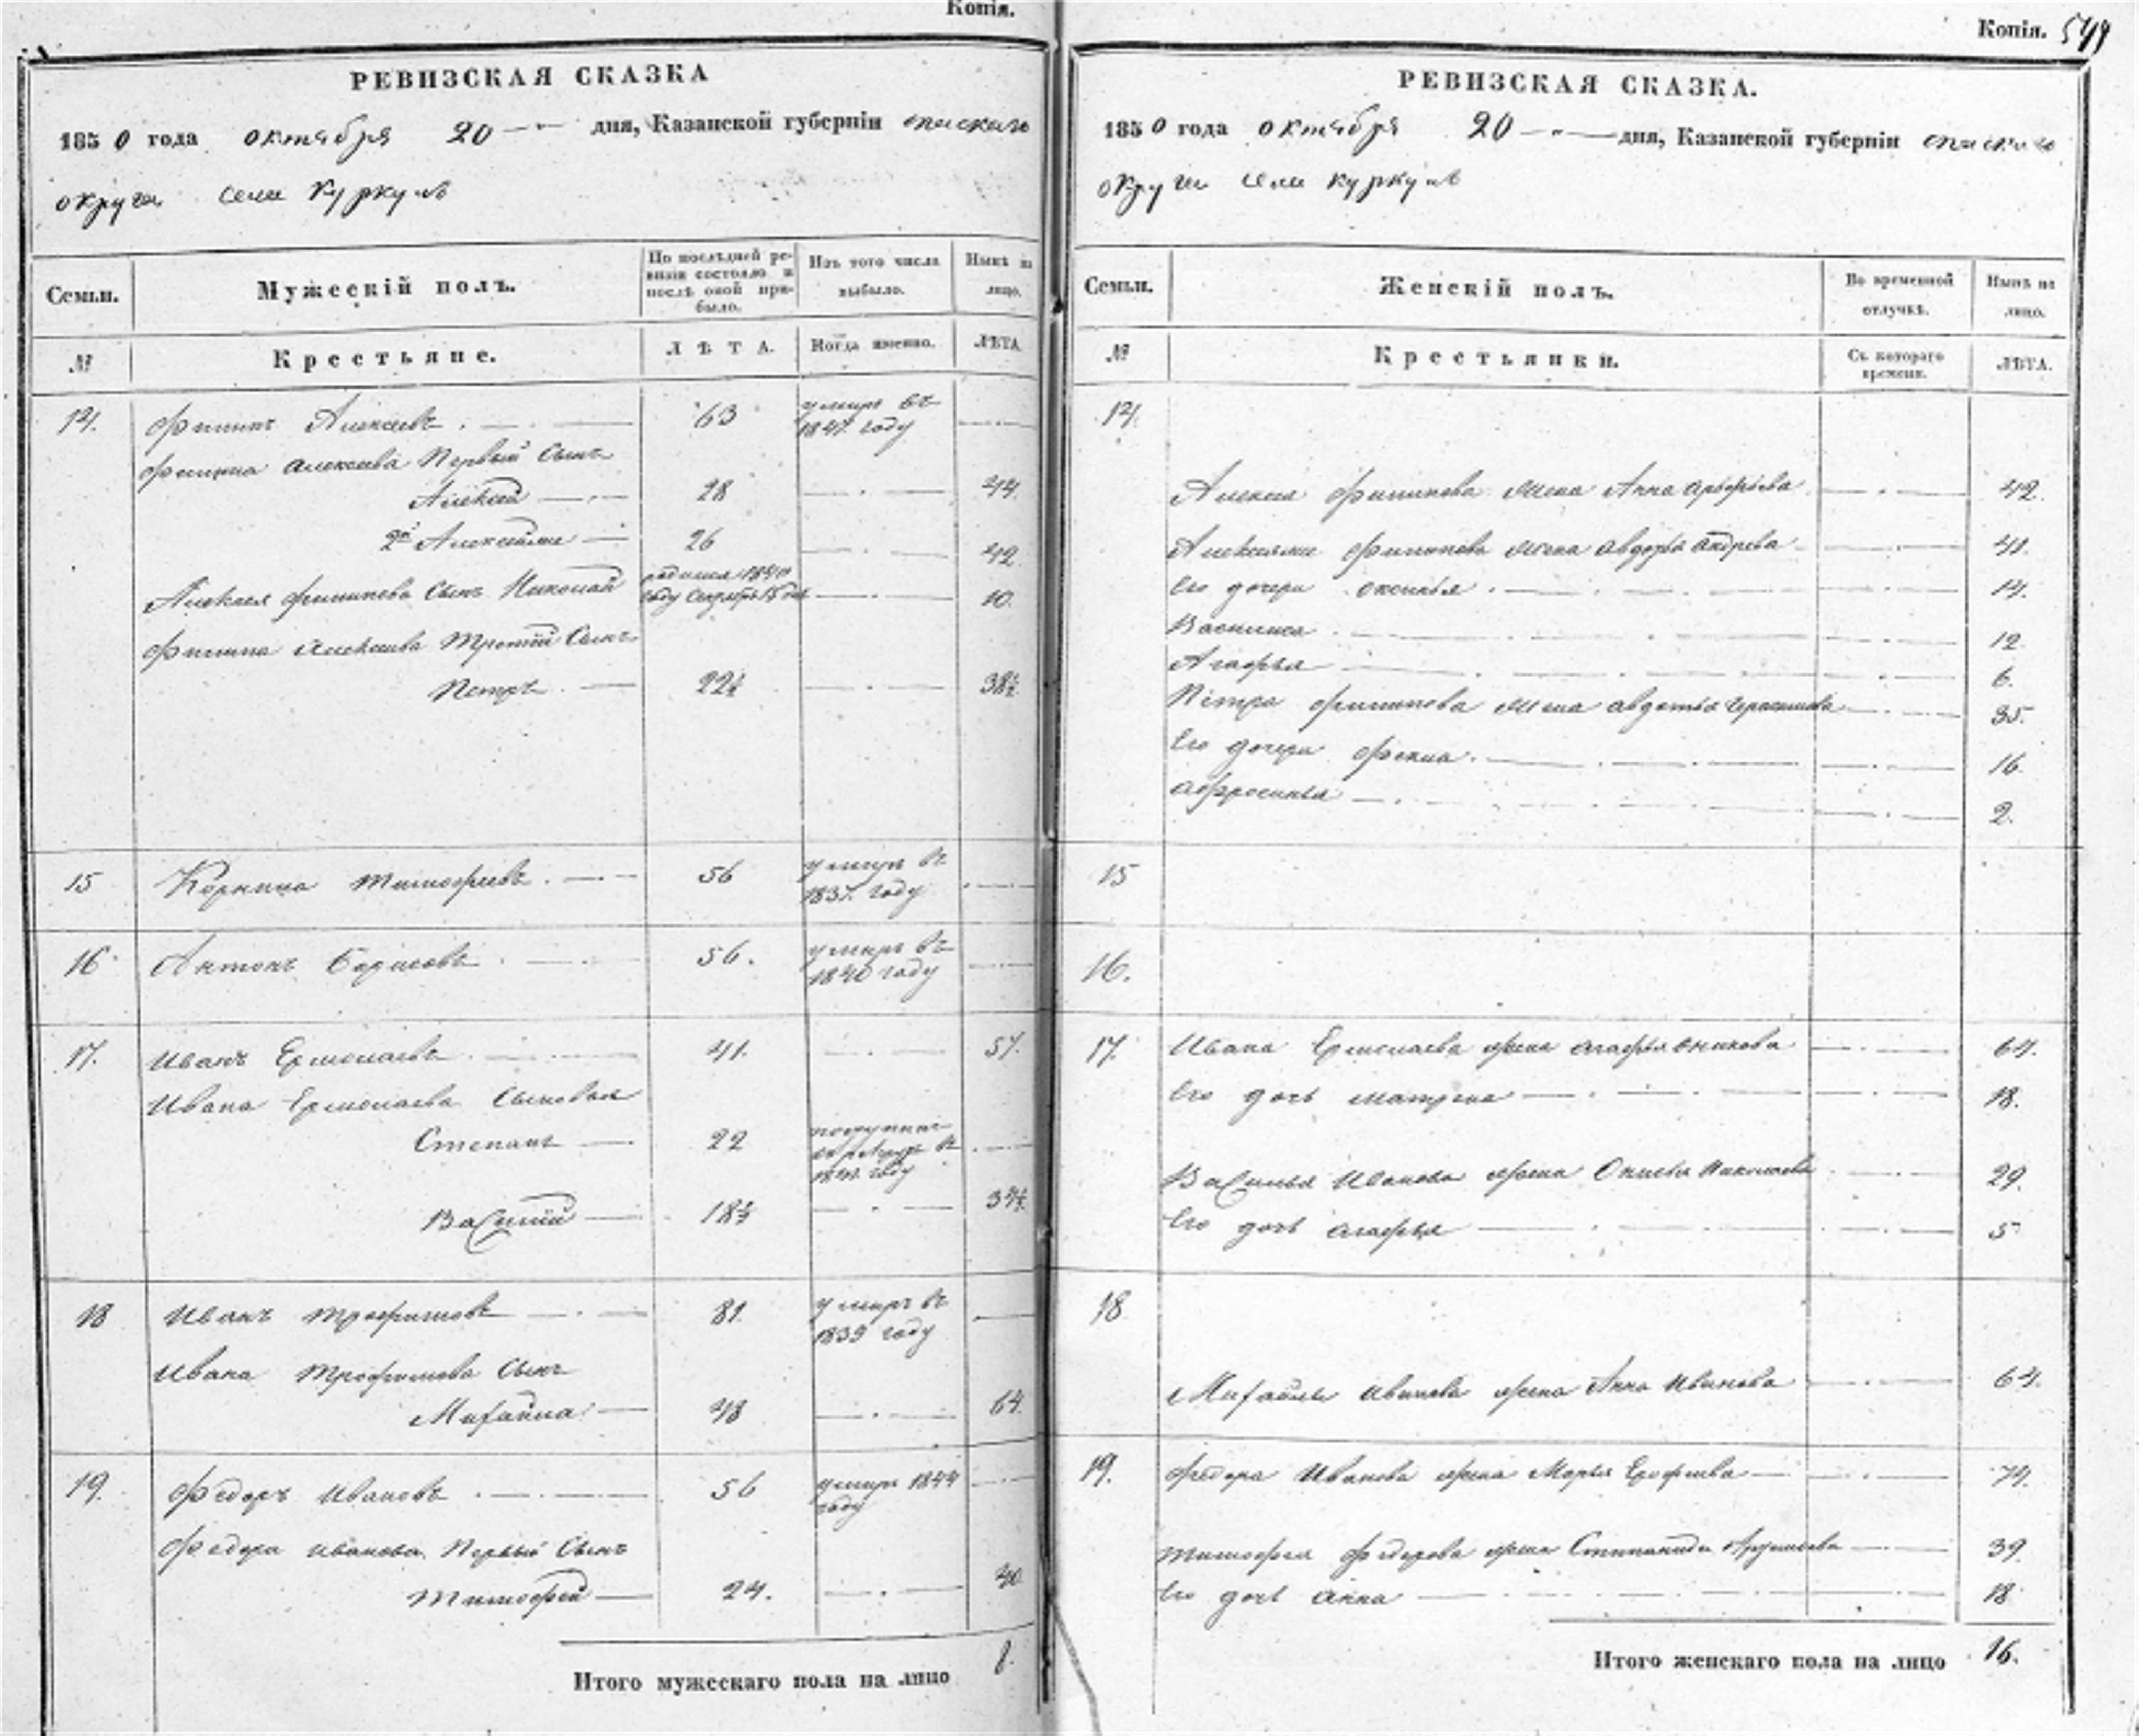 Копія.
РЕВИЗСКАЯ СКАЗКА
1850 года октября 20 дня, Казанской губерніи спаскаго
округи села Куркуль
Семьи.
Мужескій полъ.
По послѣдней ре-
визіи состояло и
послѣ оной при-
было.
Изъ того числа
выбыло.
Нынѣ на
лицо.
№
Крестьяне.
ЛѢТА.
Когда именно.
ЛѢТА.
14. Филипъ Алексѣевъ 63 умиръ въ
1847 году
Филипа Алексѣева Первый Сынъ
Алексѣй 28 44.
2й Алексѣй 26 42
Алексѣя Филипова Сынъ Николай родился 1840
году 10.
Филипа Алексѣева Третій Сынъ
Петръ 22½ 38½
15 Тимофѣевъ 56 умиръ въ
1837. году
16 Антонъ Борисовъ 56. умиръ въ
1840 году
17. Иванъ Ермолаевъ 41. 57.
Ивана Ермолаева Сыновья
Степанъ 22 въ
году
Василій 18½ 34½
18 Иванъ Трофимовъ 81. умиръ въ
1839 году
Ивана Трофимова Сынъ
Михайла 48 64.
19. Федоръ Ивановъ 56 умиръ 1844
году
Федора Иванова Первый Сынъ
Тимофей 24. 40
Итого мужескаго пола на лицо 8.
Копія. 549
РЕВИЗСКАЯ СКАЗКА.
1850 года октября 20 дня, Казанской губерніи спаскаго
округи села Куркуль
Семьи.
Женскій полъ.
Во временной
отлучкѣ.
Нынѣ на
лицо.
№
Крестьянки.
Съ котораго
времени.
ЛѢТА.
14.
Алексѣя Филипова жена Анна 42.
Филипова жена Авдотья Андрева 41.
Его дочери Оксинья 14.
Василиса 12
Агафья 6.
Петра Филипова жена Авдотья Герасимова 35.
Его дочери Фекла 16
Афросинья 2.
15
16.
17. Ивана Ермолаева жена Агафья 64.
Его дочь Матрена 18.
Василья Иванова жена Николаева 29.
Его дочь Агафья 5
18
Михайлы Иванова жена Анна Иванова 64.
19. Федора Иванова жена Марья Ерофеева 74.
Тимофея Федорова жена Степанида 39.
Его дочь Анна 18
Итого женскаго пола на лицо 16.